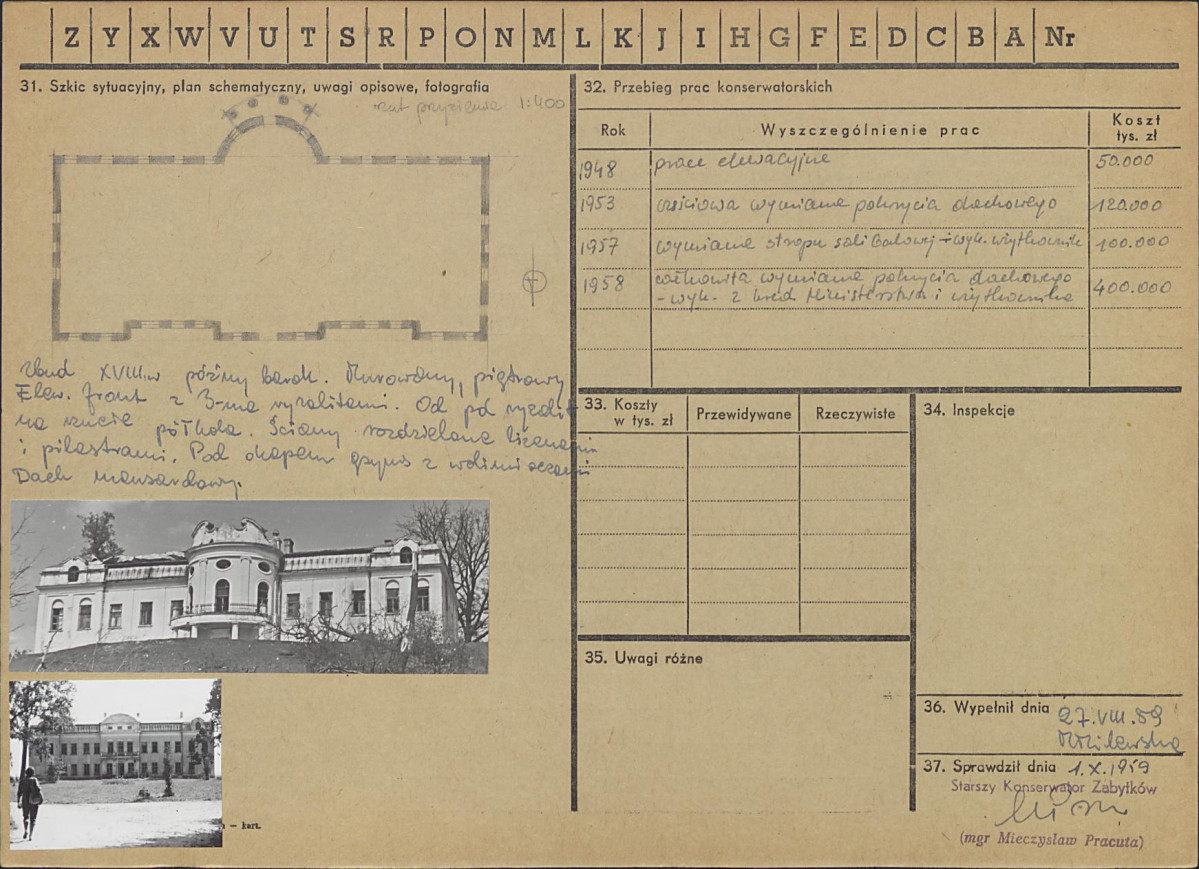 Z Y X W V U T S R P O N M L K J I H G F E D C B A Nr
31. Szkic sytuacyjny, plan schematyczny, uwagi opisowe, fotografia
rzut przyziemia 1:400
Zbud XVIII w późny barok. Murowany, piętrowy
Elew. front z 3-ma ryzalitami. Od pd ryzalit
na rzucie półkola. Ściany rozdzielone lizenami
i pilastrami. Pod okapem gzyms z wolimi oczami
Dach mansardowy.
– kart.
32. Przebieg prac konserwatorskich
Rok Wyszczególnienie prac Koszt tys. zł
1948 prace elewacyjne 50.000
1953 cześciowa wymiana pokrycia dachowego 120.000
1957 wymiana stropu sali balowej – wyk. użytkownik 100.000
1958 całkowita wymiana pokrycia dachowego 400.000
– wyk. z kred Ministerstwa i użytkownika
33. Koszty w tys. zł Przewidywane Rzeczywiste
34. Inspekcje
35. Uwagi różne
36. Wypełnił dnia 27.VIII.59
37. Sprawdził dnia 1.X.1959
Starszy Konserwator Zabytków
(mgr Mieczysław Pracuta)